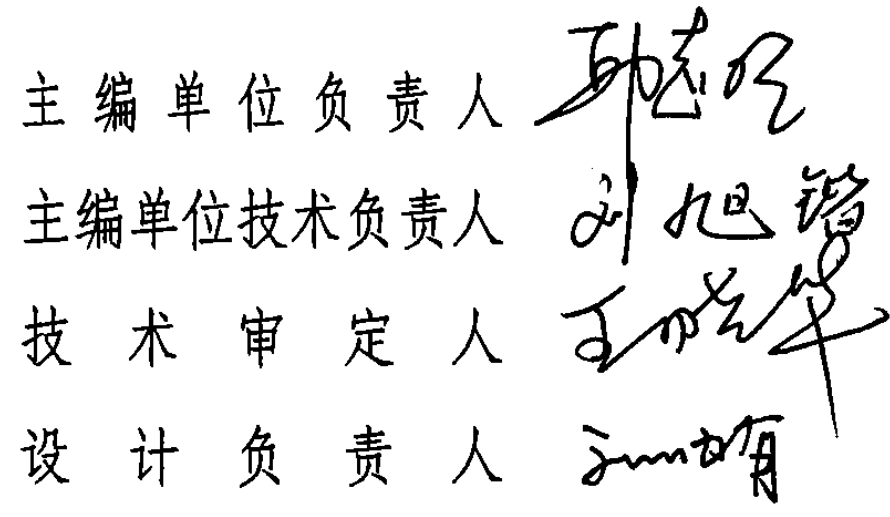 主编单位负责人
主编单位技术负责人 刘旭锴
技术审定人 王晓华
设计负责人